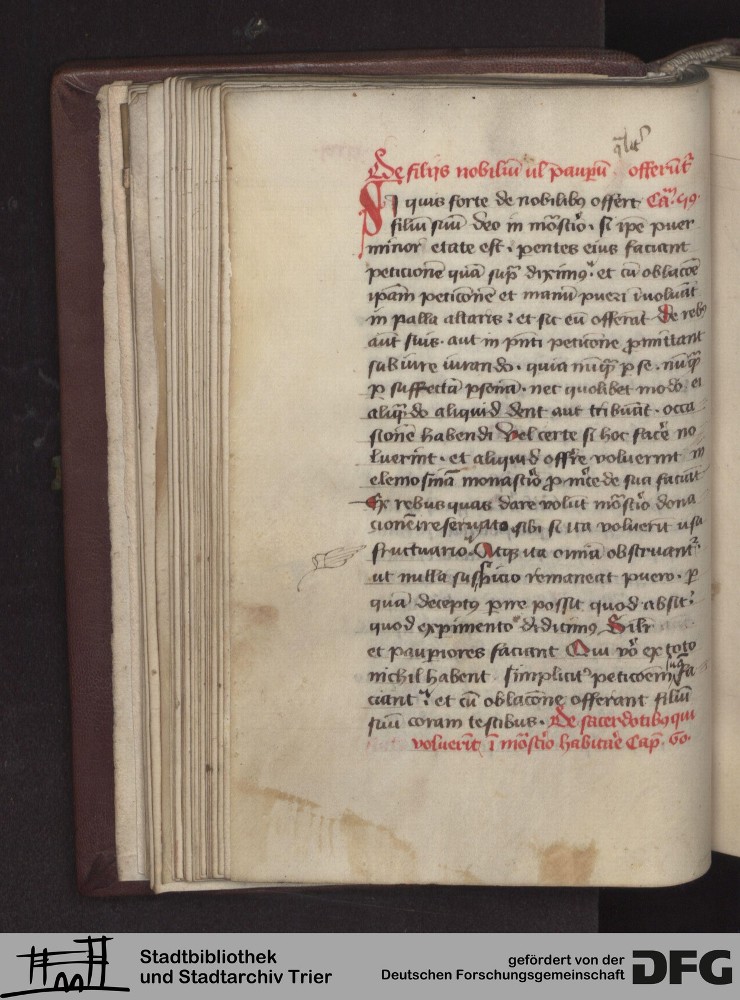 qͣlit͛
De filijs nobiliū ul̄ paup̄ū offerūt᷑
Si quis forte de nobilibꝫ offert Caᷓ. 59.
filiū suū deo in mōst͛io. si ip̄e puer
minor etate est. p̄entes eius faciant
peticionē quā sup̄ͣ diximꝰ. et cū oblacōe
ip̄am peticōnē et manū pueri īuoluāt
in palla altaris: et sic eū offerāt De rebꝫ
aut̄ suis. aut in p̄nti peticōne ꝓmittant
sub iure iurando. quia nūq̄ᷓ ꝑ se. nūq̄ᷓ
ꝑ suffectā ꝑsonā. nec quolibet modo ei
aliq̄ᷓdo aliquid dent aut tribuāt. occa
sionē habendi Vel certe si hoc fac̄e no
luerint. et aliquid off͛re voluerint in
elemosinā monast͛io ꝓ m͛cede sua faciāt
Ex rebus quas dare volūt mōst͛io dona
cionē reseruato sibi si ita voluerit usu
fructuario. Atqꝫ ita omīa obstruant᷑
ut nulla suspicio remaneat puero. ꝑ
quā deceptꝰ ꝑire possit quod absit:
quod exꝑimento didicimꝰ Silr̄
et pauꝑiores faciant Qui vͦo ex toto
nichil habent simplicit͛ peticōem fa
ciant: et cū oblacōne offerant filiū
suū coram testibus. De sacerdotibꝫ qui
voluerīt ī mōst͛io habitar̄e Cap̄. 60.
Stadtbibliothek
und Stadtarchiv Trier
gefördert von der
Deutschen Forschungsgemeinschaft
DFG